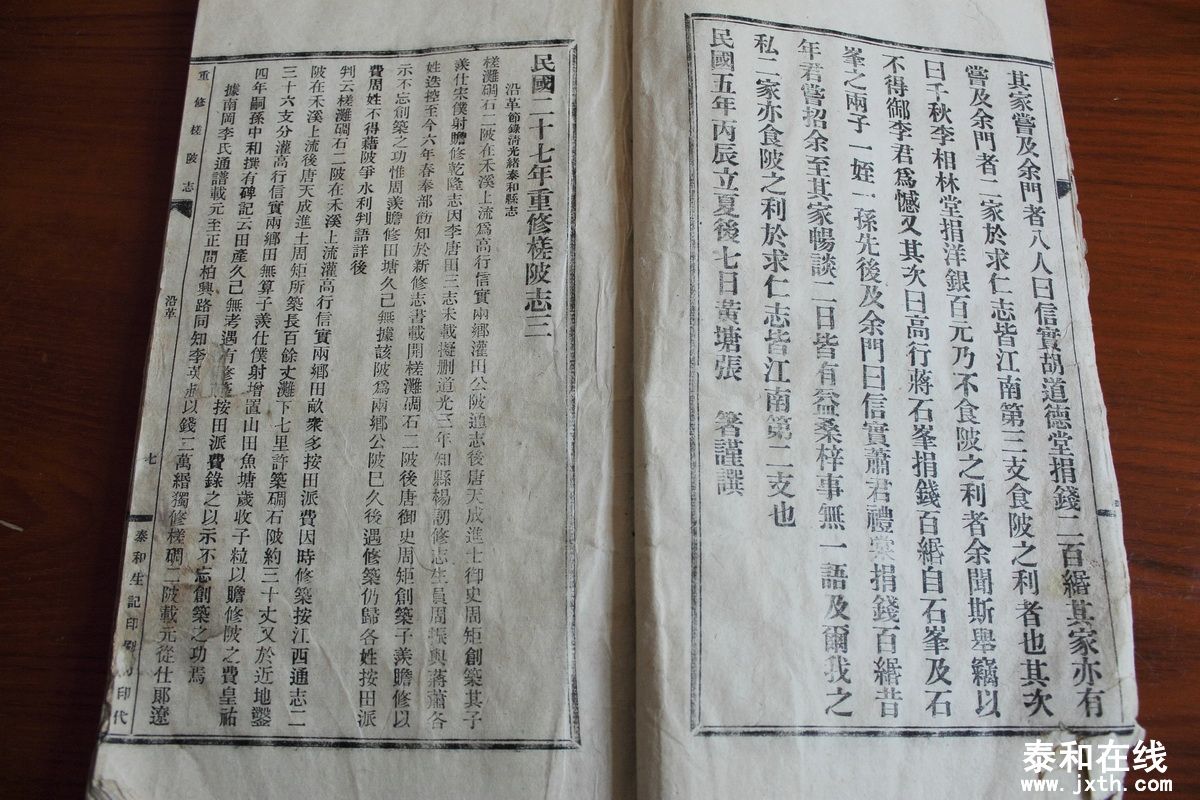 其家嘗及余門者八人曰信實胡道德堂捐錢二百緡其家亦有
嘗及余門者二家於求仁志皆江南第三支食陂之利者也其次
曰千秋李相林堂捐洋銀百元乃不食陂之利者余聞斯舉竊以
不得御李君為憾又其次曰高行蔣石峯捐錢百緡自石峯及石
峯之兩子一姪一孫先後及余門曰信實蕭君禮棠捐錢百緡昔
年君嘗招余至其家暢談二日皆有益桑梓事無一語及爾我之
私二家亦食陂之利於求仁志皆江南第二支也
民國五年丙辰立夏後七日黃塘張 箸謹譔
民國二十七年重修槎陂志三
沿革節錄淸光緒泰和縣志
槎灘碉石二陂在禾溪上流為高行信實兩鄉灌田公陂通志後唐天成進士御史周矩創築其子
羨仕宋僕射贍修乾隆志因李唐田三志未載擬刪道光三年知縣楊訒修志生員周振興蔣蕭各
姓迭控至今六年春奉部飭知於新修志書載開槎灘碉石二陂後唐御史周矩創築子羨贍修以
示不忘創築之功惟周羨贍修田塘久已無據該陂為兩鄉公陂已久後遇修築仍歸各姓按田派
費周姓不得藉陂爭水利判語詳後
判云槎灘碉石二陂在禾溪上流灌高行信實兩鄉田畝衆多按田派費因時修築按江西通志二
陂在禾溪上流後唐天成進士周矩所築長百餘丈灘下七里許築碉石陂約三十丈又於近地鑿
三十六支分灌高行信實兩鄉田無算子羨仕僕射增置山田魚塘歲收子粒以贍修陂之費皇祐
四年嗣孫中和撰有碑記云田產久已無考遇有修築按田派費錄之以示不忘創築之功焉
據南岡李氏通譜載元至正間柏興路同知李英叔以錢二萬緡獨修槎碉二陂載元從仕郞遼
重修槎陂志
沿革
七
泰和生記印刷 印代
泰和在线
www.jxth.com